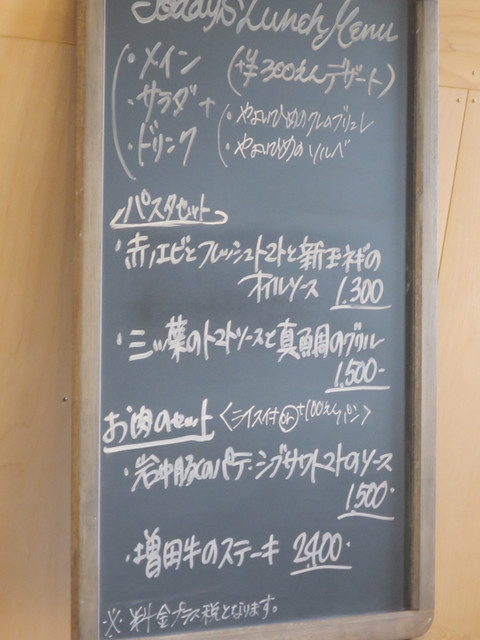 Today's Lunch Menu
・メイン (+¥300えんデザート)
・サラダ +
・やよいひめのクレームブリュレ
・ドリンク
・やよいひめのソルベ
パスタセット
・赤エビとフレッシュトマトと新玉ネギの
オイルソース 1.300
・三ッ葉のトマトソースと真鯛のグリル
1.500-
お肉のセット <ライス付 or +100えんパン>
・岩中豚のパテ・シブサワトマトのソース
1500-
・増田牛のステーキ 2.400-
※ 料金プラス税となります。